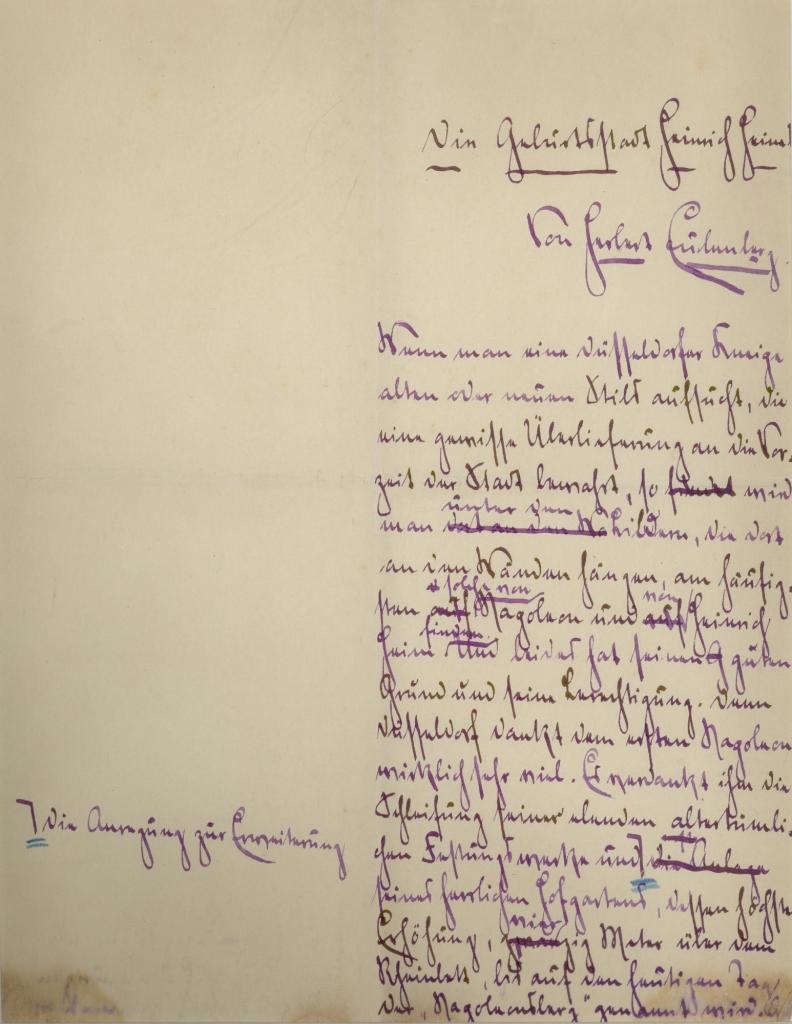 Die Geburtsstadt Heinrich Heines
Von Herbert Eulenberg
Wenn man eine Düsseldorfer Kneipe
alten oder neuen Stils aufsucht, die
eine gewisse Überlieferung an die Vor-
zeit der Stadt bewahrt, so findet wird
unter den
man dat an den Wa Bildern, die dort
an den Wänden hängen, am häufig-
solche von von
sten auf Napoleon und auf Heinrich
finden.
Heine Und beides hat seinen guten
Grund und seine Berechtigung. Denn
Düsseldorf dankt dem ersten Napoleon
wirklich sehr viel. Es verdankt ihm die
Schleifung seiner elenden altertümli-
chen Festungswerke und die Anlage
die Anregung zur Erweiterung
seines herrlichen Hofgartens, dessen höchste
vier
Erhöhung, zwanzig Meter über dem
Rheinbett, bis auf den heutigen Tag
der „Napoleonsberg" genannt wird.